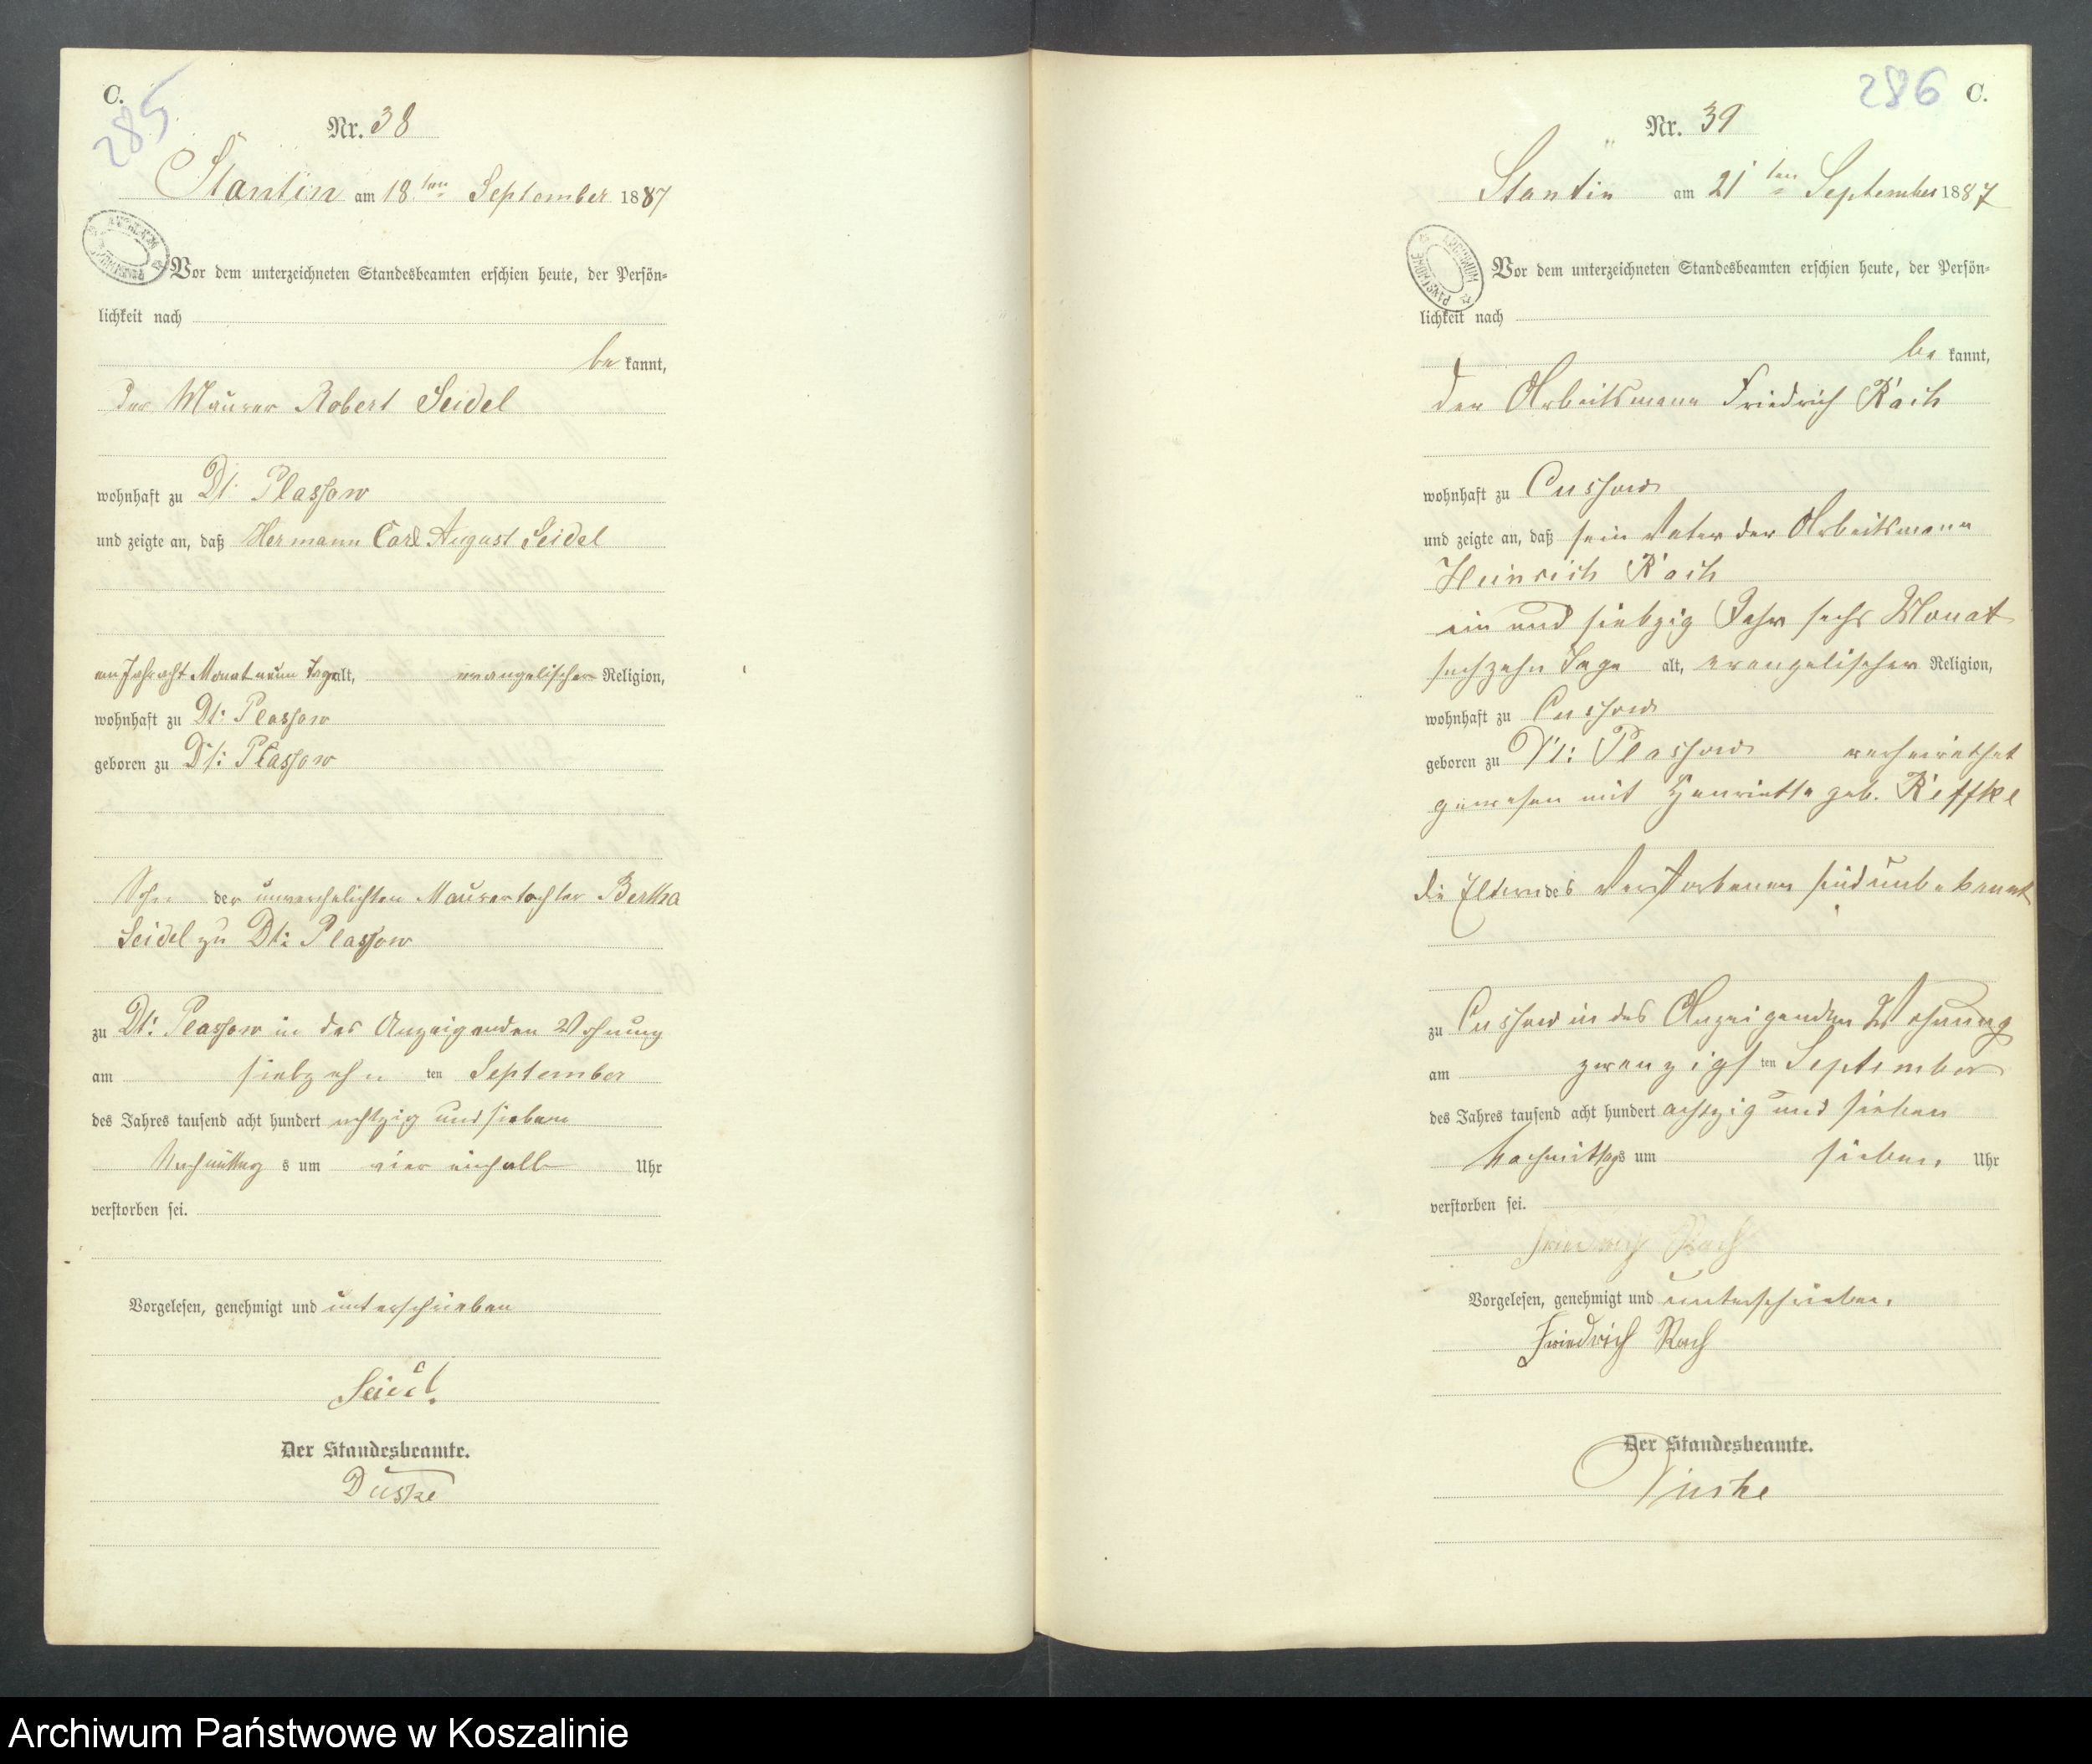 C.
285
Nr. 38
Stantin am 18ten September 1887
Vor dem unterzeichneten Standesbeamten erschien heute, der Persön=
lichkeit nach
be kannt,
der Maurer Robert Seidel
wohnhaft zu Dt: Plassow
und zeigte an, daß Hermann Carl August Seidel
ein Jahr acht Monat neun Tage alt, evangelischer Religion,
wohnhaft zu Dt: Plassow
geboren zu Dt: Plassow
Sohn der unverehelichten Maurertochter Bertha
Seidel zu Dt: Plassow
zu Dt: Plassow in des Anzeigenden Wohnung
am siebzehn ten September
des Jahres tausend acht hundert achtzig und sieben
Nachmittag s um vier einhalb Uhr
verstorben sei.
Vorgelesen, genehmigt und unterschrieben
Seidel.
Der Standesbeamte.
Duske
286 C.
Nr. 39
Stantin am 21ten September 1887
ARCHIWUM PAŃSTWOWE
Vor dem unterzeichneten Standesbeamten erschien heute, der Persön=
lichkeit nach
be kannt,
der Arbeitsmann Friedrich Rach
wohnhaft zu Cussow
und zeigte an, daß sein Vater der Arbeitsmann
Heinrich Rach
ein und siebzig Jahr sechs Monat
sechzehn Tage alt, evangelischer Religion,
wohnhaft zu Cussow
geboren zu Dt: Plassow verheirathet
gewesen mit Henriette geb. Reffke
die Eltern des Verstorbenen sind unbekannt
zu Cussow in des Anzeigenden Wohnung
am zwanzigs ten September
des Jahres tausend acht hundert achtzig und sieben
Nachmittags um sieben Uhr
verstorben sei.
Friedrich Rach
Vorgelesen, genehmigt und unterschrieben.
Friedrich Rach
Der Standesbeamte.
Duske
Archiwum Państwowe w Koszalinie